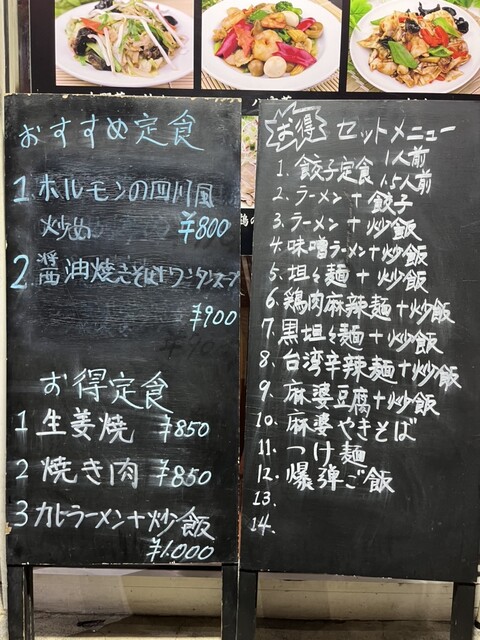 おすすめ定食
1 ホルモンの四川風
炒め ¥800
2 醤油焼きそば+ワンタンスープ
¥900
お得定食
1 生姜焼 ¥850
2 焼き肉 ¥850
3 カレーラーメン+炒飯
¥1.000
お得 セットメニュー
1. 餃子定食 1人前
1.5人前
2. ラーメン + 餃子
3. ラーメン + 炒飯
4. 味噌ラーメン+炒飯
5. 坦々麺 + 炒飯
6. 鶏肉麻辣麺+炒飯
7. 黒坦々麺+炒飯
8. 台湾辛辣麺+炒飯
9. 麻婆豆腐+炒飯
10. 麻婆やきそば
11. つけ麺
12. 爆弾ご飯
13.
14.